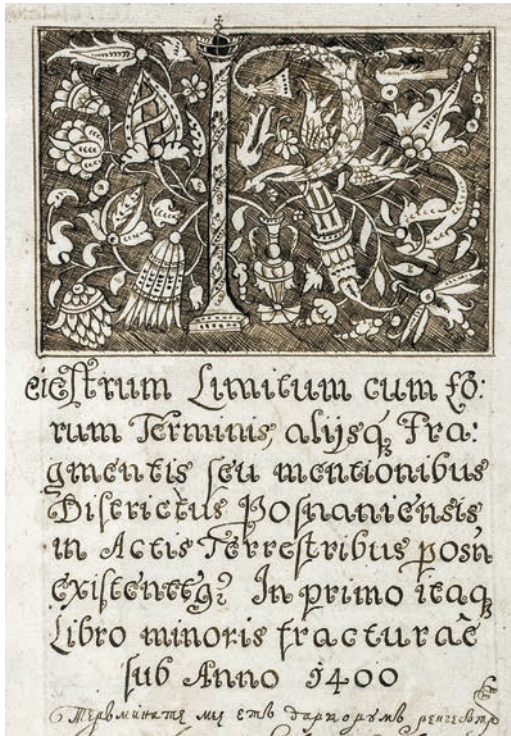 R
eiestrum Limitum cum eo:
rum Terminis, alijsq̨ Fra:
gmentis seu mentionibus
Districtus Posnaniensis,
in Actis Terrestribus posn̄
existentes In primo itaq̨
Libro minoris fracturae
sub Anno 1400